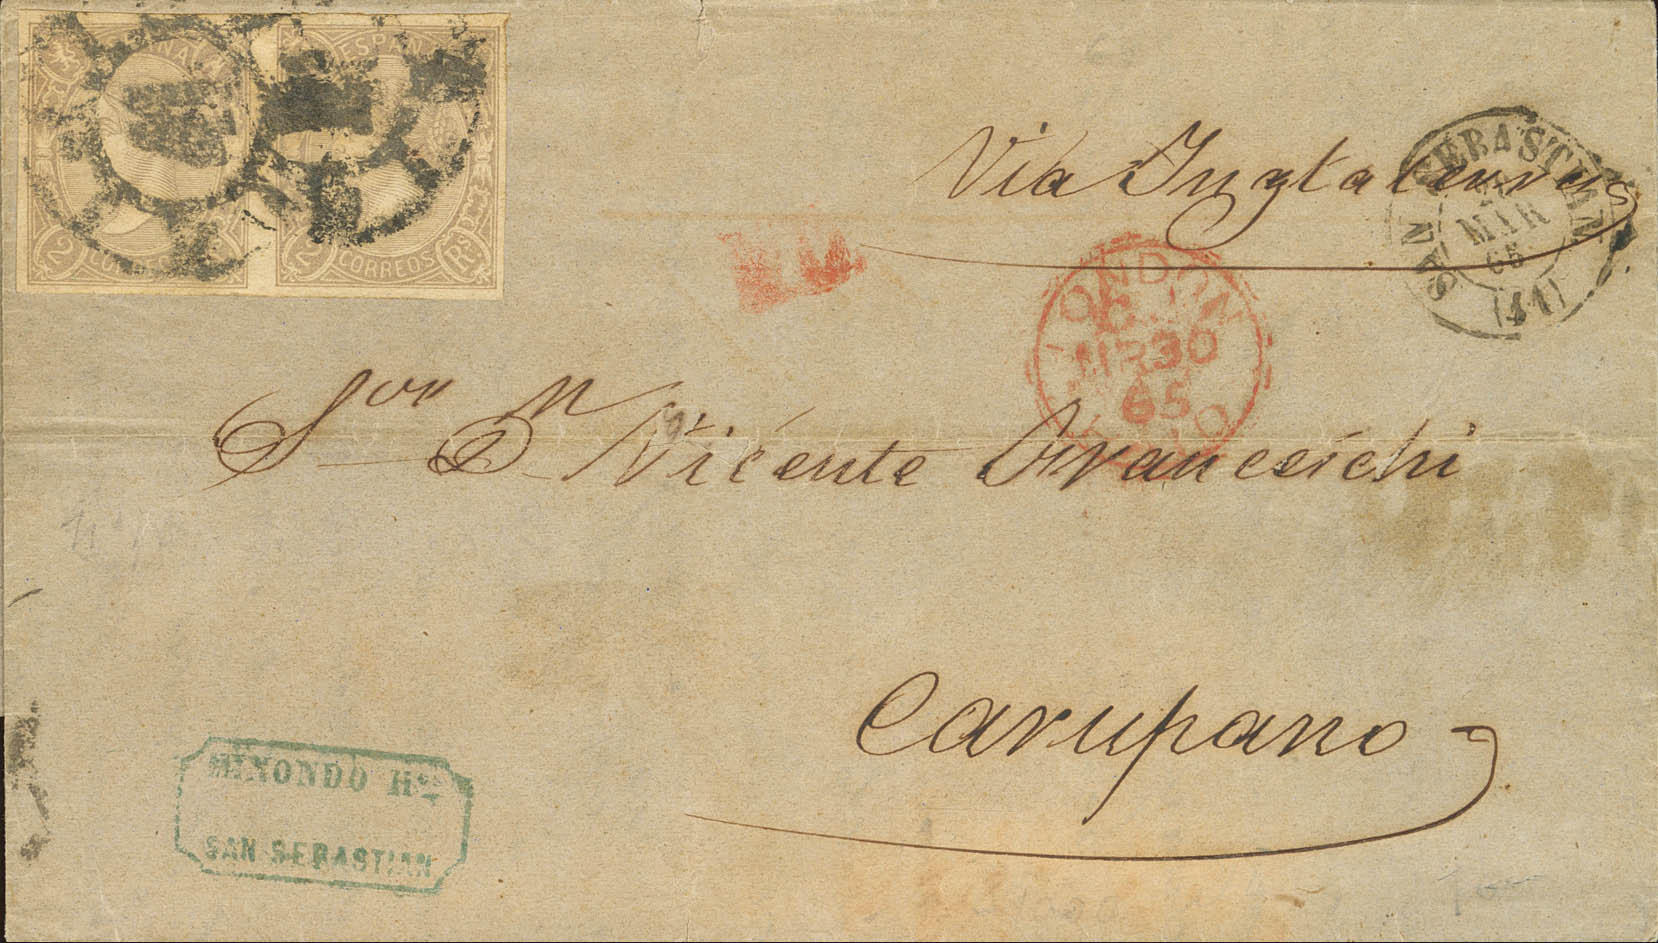 ESPAÑA
2 CORREOS Rs
2 CORREOS
Via Inglaterra
SAN SEBASTIAN
MAR
65
(11)
LONDON
MR30
65
PAID
Sor Dn Vicente Franceschi
Carupano
MINONDO Hos
SAN SEBASTIAN